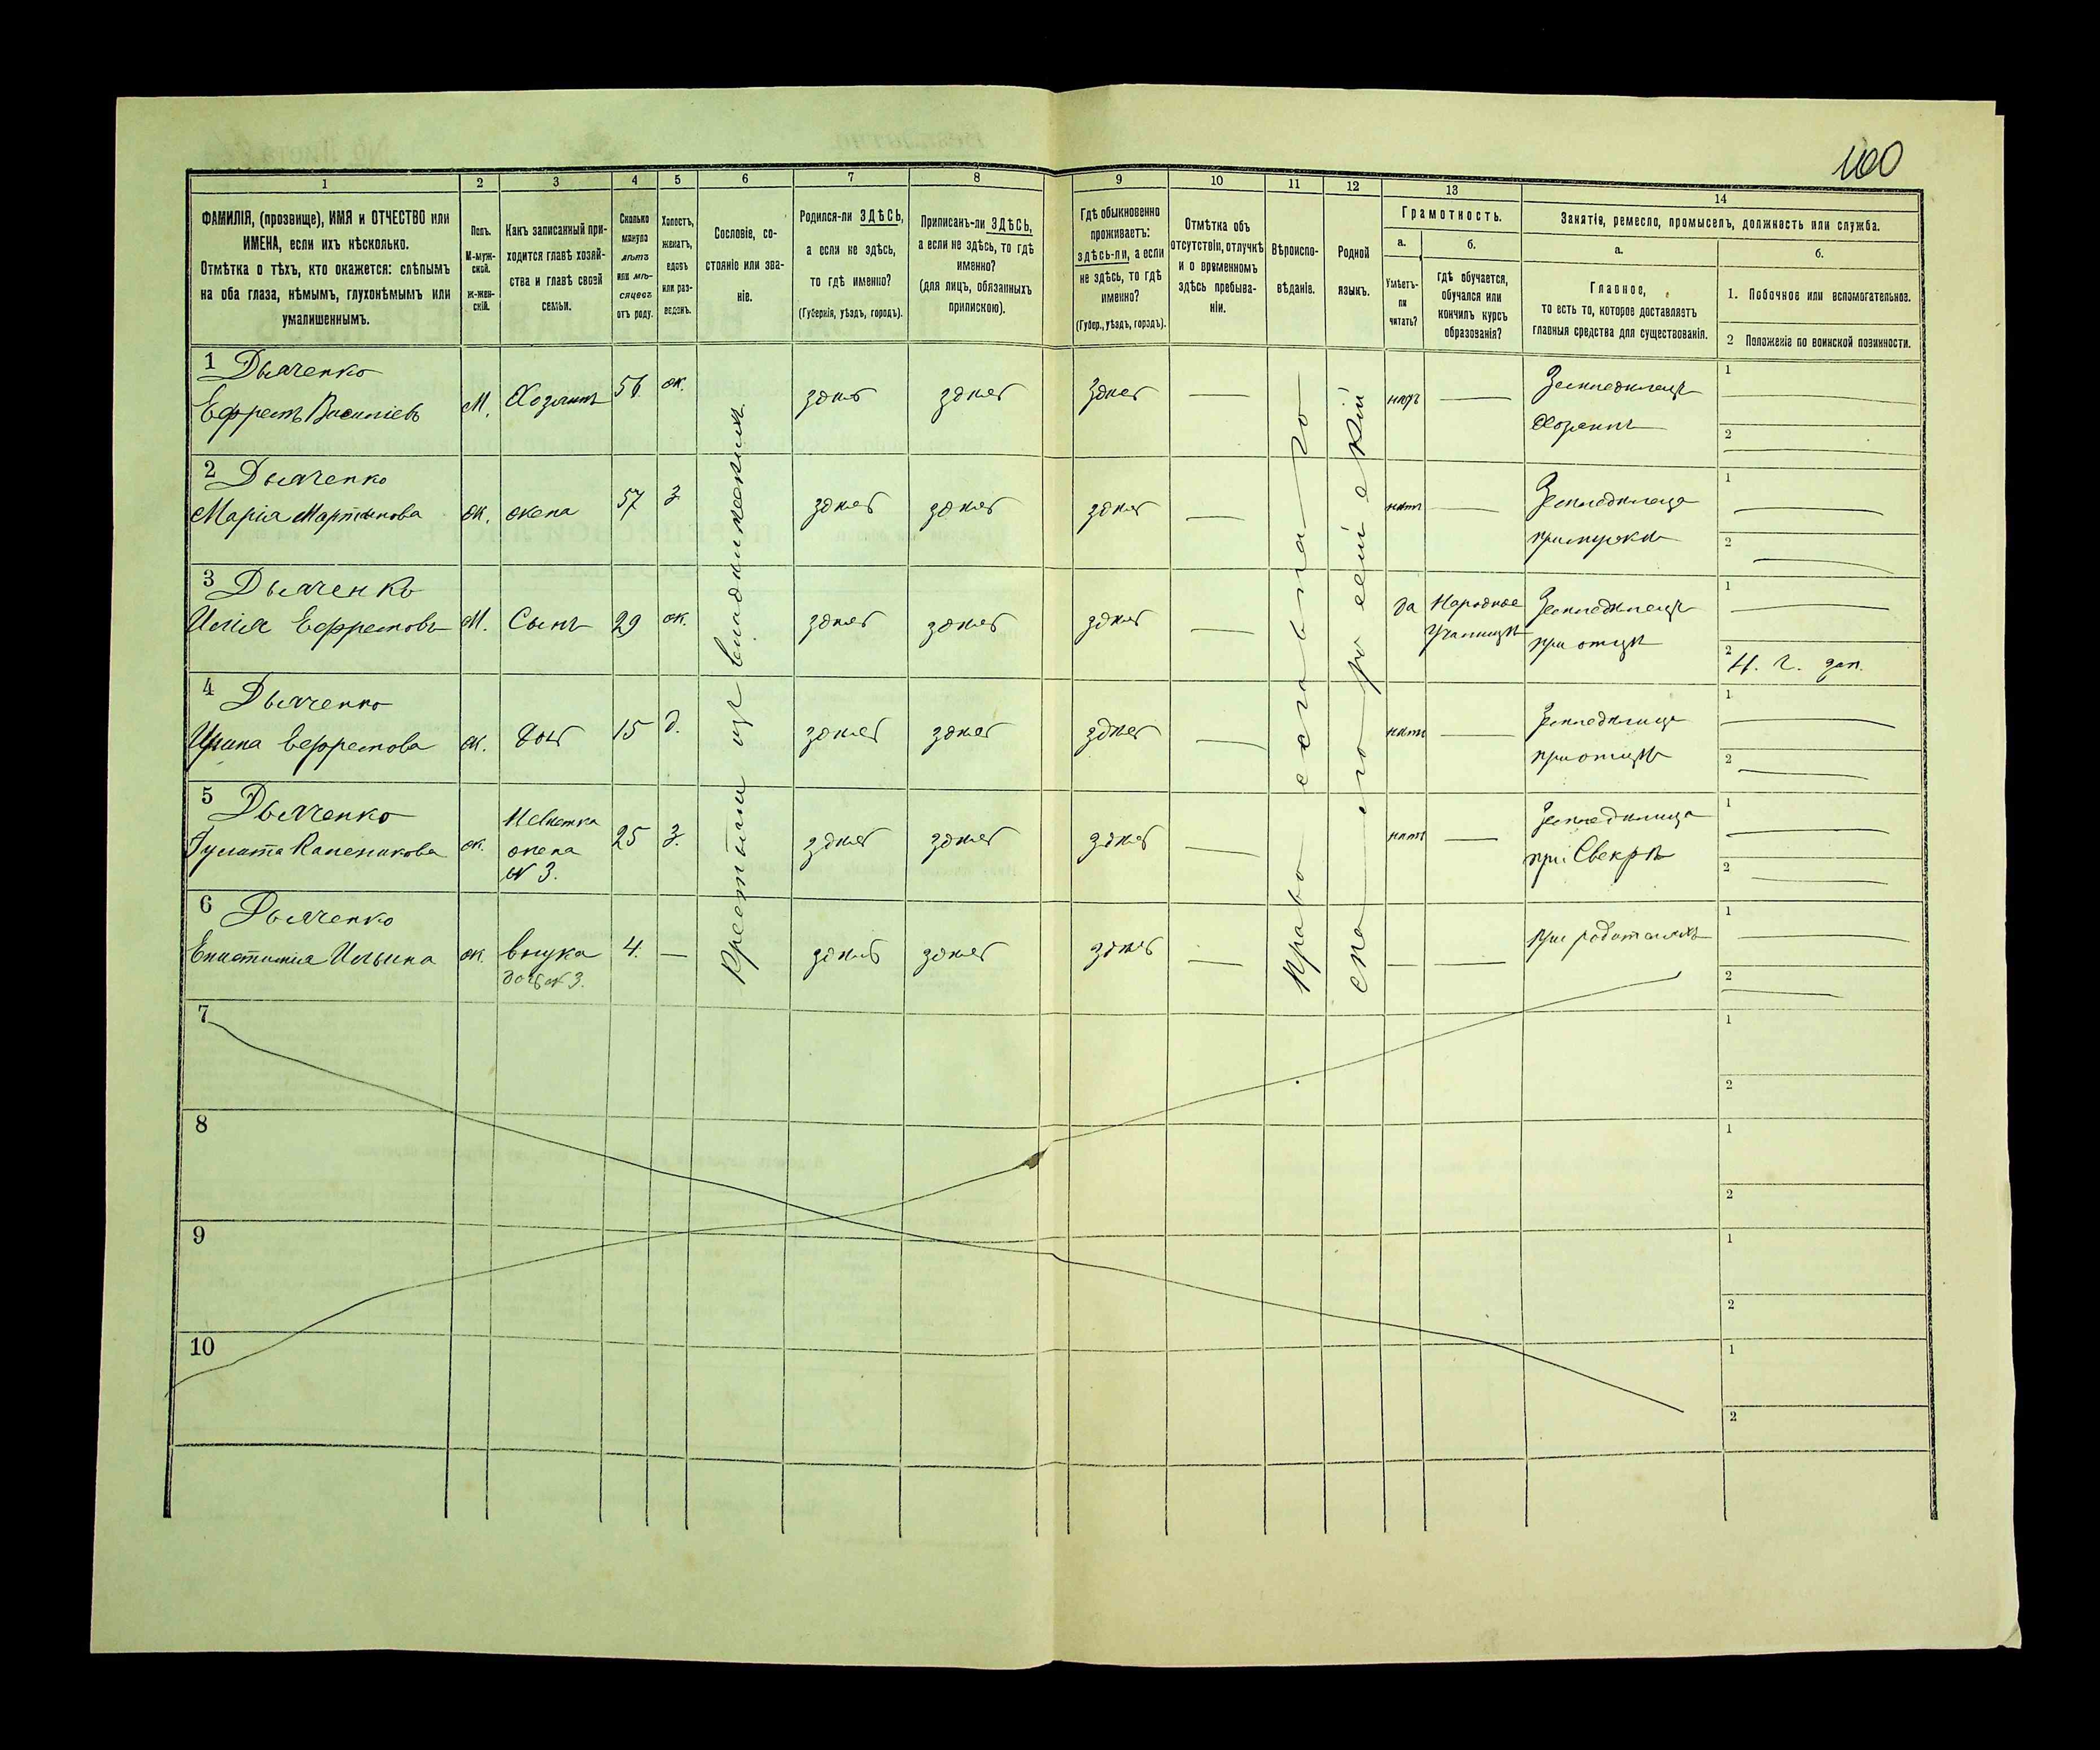 100
1 2 3 4 5 6 7 8 9 10 11 12 13 14
ФАМИЛІЯ, (прозвище), ИМЯ и ОТЧЕСТВО или
ИМЕНА, если ихъ нѣсколько.
Отмѣтка о тѣхъ, кто окажется: слѣпымъ
на оба глаза, нѣмымъ, глухонѣмымъ или
умалишеннымъ.
Полъ.
М-муж-
ской.
ж-жен-
скій.
Какъ записанный при-
ходится главѣ хозяй-
ства и главѣ своей
семьи.
Сколько
минуло
лѣтъ
или мѣ-
сяцевъ
отъ роду.
Холостъ,
женатъ,
вдовъ
или раз-
веденъ.
Сословіе, со-
стояніе или зва-
ніе.
Родился-ли ЗДѢСЬ,
а если не здѣсь,
то гдѣ именно?
(Губернія, уѣздъ, городъ).
Приписанъ-ли ЗДѢСЬ,
а если не здѣсь, то гдѣ
именно?
(для лицъ, обязанныхъ
припискою).
Гдѣ обыкновенно
проживаетъ:
здѣсь-ли, а если
не здѣсь, то гдѣ
именно?
(Губер., уѣздъ, городъ).
Отмѣтка объ
отсутствіи, отлучкѣ
и о временномъ
здѣсь пребыва-
ніи.
Вѣроиспо-
вѣданіе.
Родной
языкъ.
Грамотность.
а.
Умѣетъ-
ли
читать?
б.
Гдѣ обучается,
обучался или
кончилъ курсъ
образованія?
Занятіе, ремесло, промыселъ, должность или служба.
а.
Главное,
то есть то, которое доставляетъ
главныя средства для существованія.
б.
1. Побочное или вспомогательное.
2 Положеніе по воинской повинности.
1 Дьяченко
Ефремъ Василіевъ М. Хозяинъ 56 ж. здѣсь здѣсь здѣсь — нѣтъ — Земледѣлецъ
Хозяинъ
1
2
2 Дьяченко
Марія Мартынова ж. жена 57 з здѣсь здѣсь здѣсь — нѣтъ — Земледѣлица
при мужѣ
1
2
3 Дьяченко
Илія Ефремовъ М. Сынъ 29 ж. здѣсь здѣсь здѣсь — да Народное
Училище
Земледѣлецъ
при отцѣ
1
2
4 Дьяченко
Ирина Ефремова ж. дочь 15 д. здѣсь здѣсь здѣсь — нѣтъ — Земледѣлица
при отцѣ
1
2
5 Дьяченко
ж. Невѣстка
жена
№ 3. 25 з. здѣсь здѣсь здѣсь — нѣтъ — Земледѣлица
при Свекрѣ
1
2
6 Дьяченко
Ильина ж. внука
дочь № 3. 4. — здѣсь здѣсь здѣсь — — — при родителяхъ
1
2
Крестьяне изъ
православнаго
малороссійскій
7
1
2
8
1
2
9
1
2
10
1
2